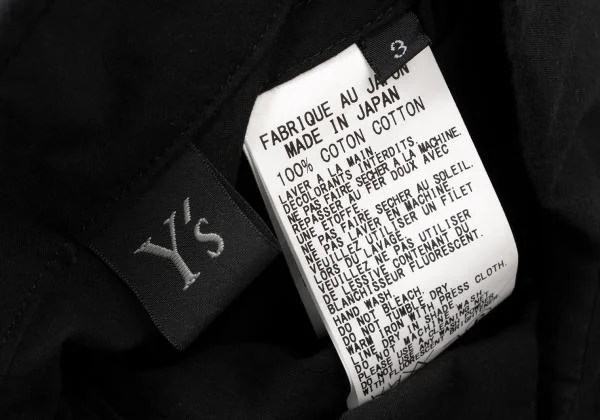 Y's
3
FABRIQUE AU JAPON
MADE IN JAPAN
100% COTON COTTON
LAVER A LA MAIN.
DECOLORANTS INTERDITS.
NE PAS FAIRE SECHER A LA MACHINE.
REPASSER AU FER DOUX AVEC
UNE ETOFFE.
NE PAS FAIRE SECHER AU SOLEIL.
NE PAS LAVER EN MACHINE.
VEUILLEZ UTILISER UN FILET
LORS DU LAVAGE.
VEUILLEZ NE PAS UTILISER
DE LESSIVE CONTENANT DU
BLANCHISSEUR FLUORESCENT.
HAND WASH.
DO NOT BLEACH.
DO NOT TUMBLE DRY.
WARM IRON WITH PRESS CLOTH.
LINE DRY IN SHADE.
DO NOT MACHINE WASH.
PLEASE USE A CLEANSING NET.